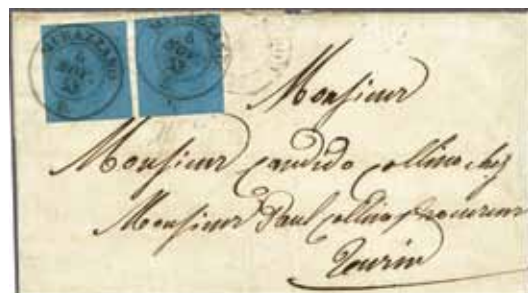 MURAZZANO
6
NOV
Monsieur
Monsieur Candido Collino chez
Monsieur Paul Collino Procureur
Turin